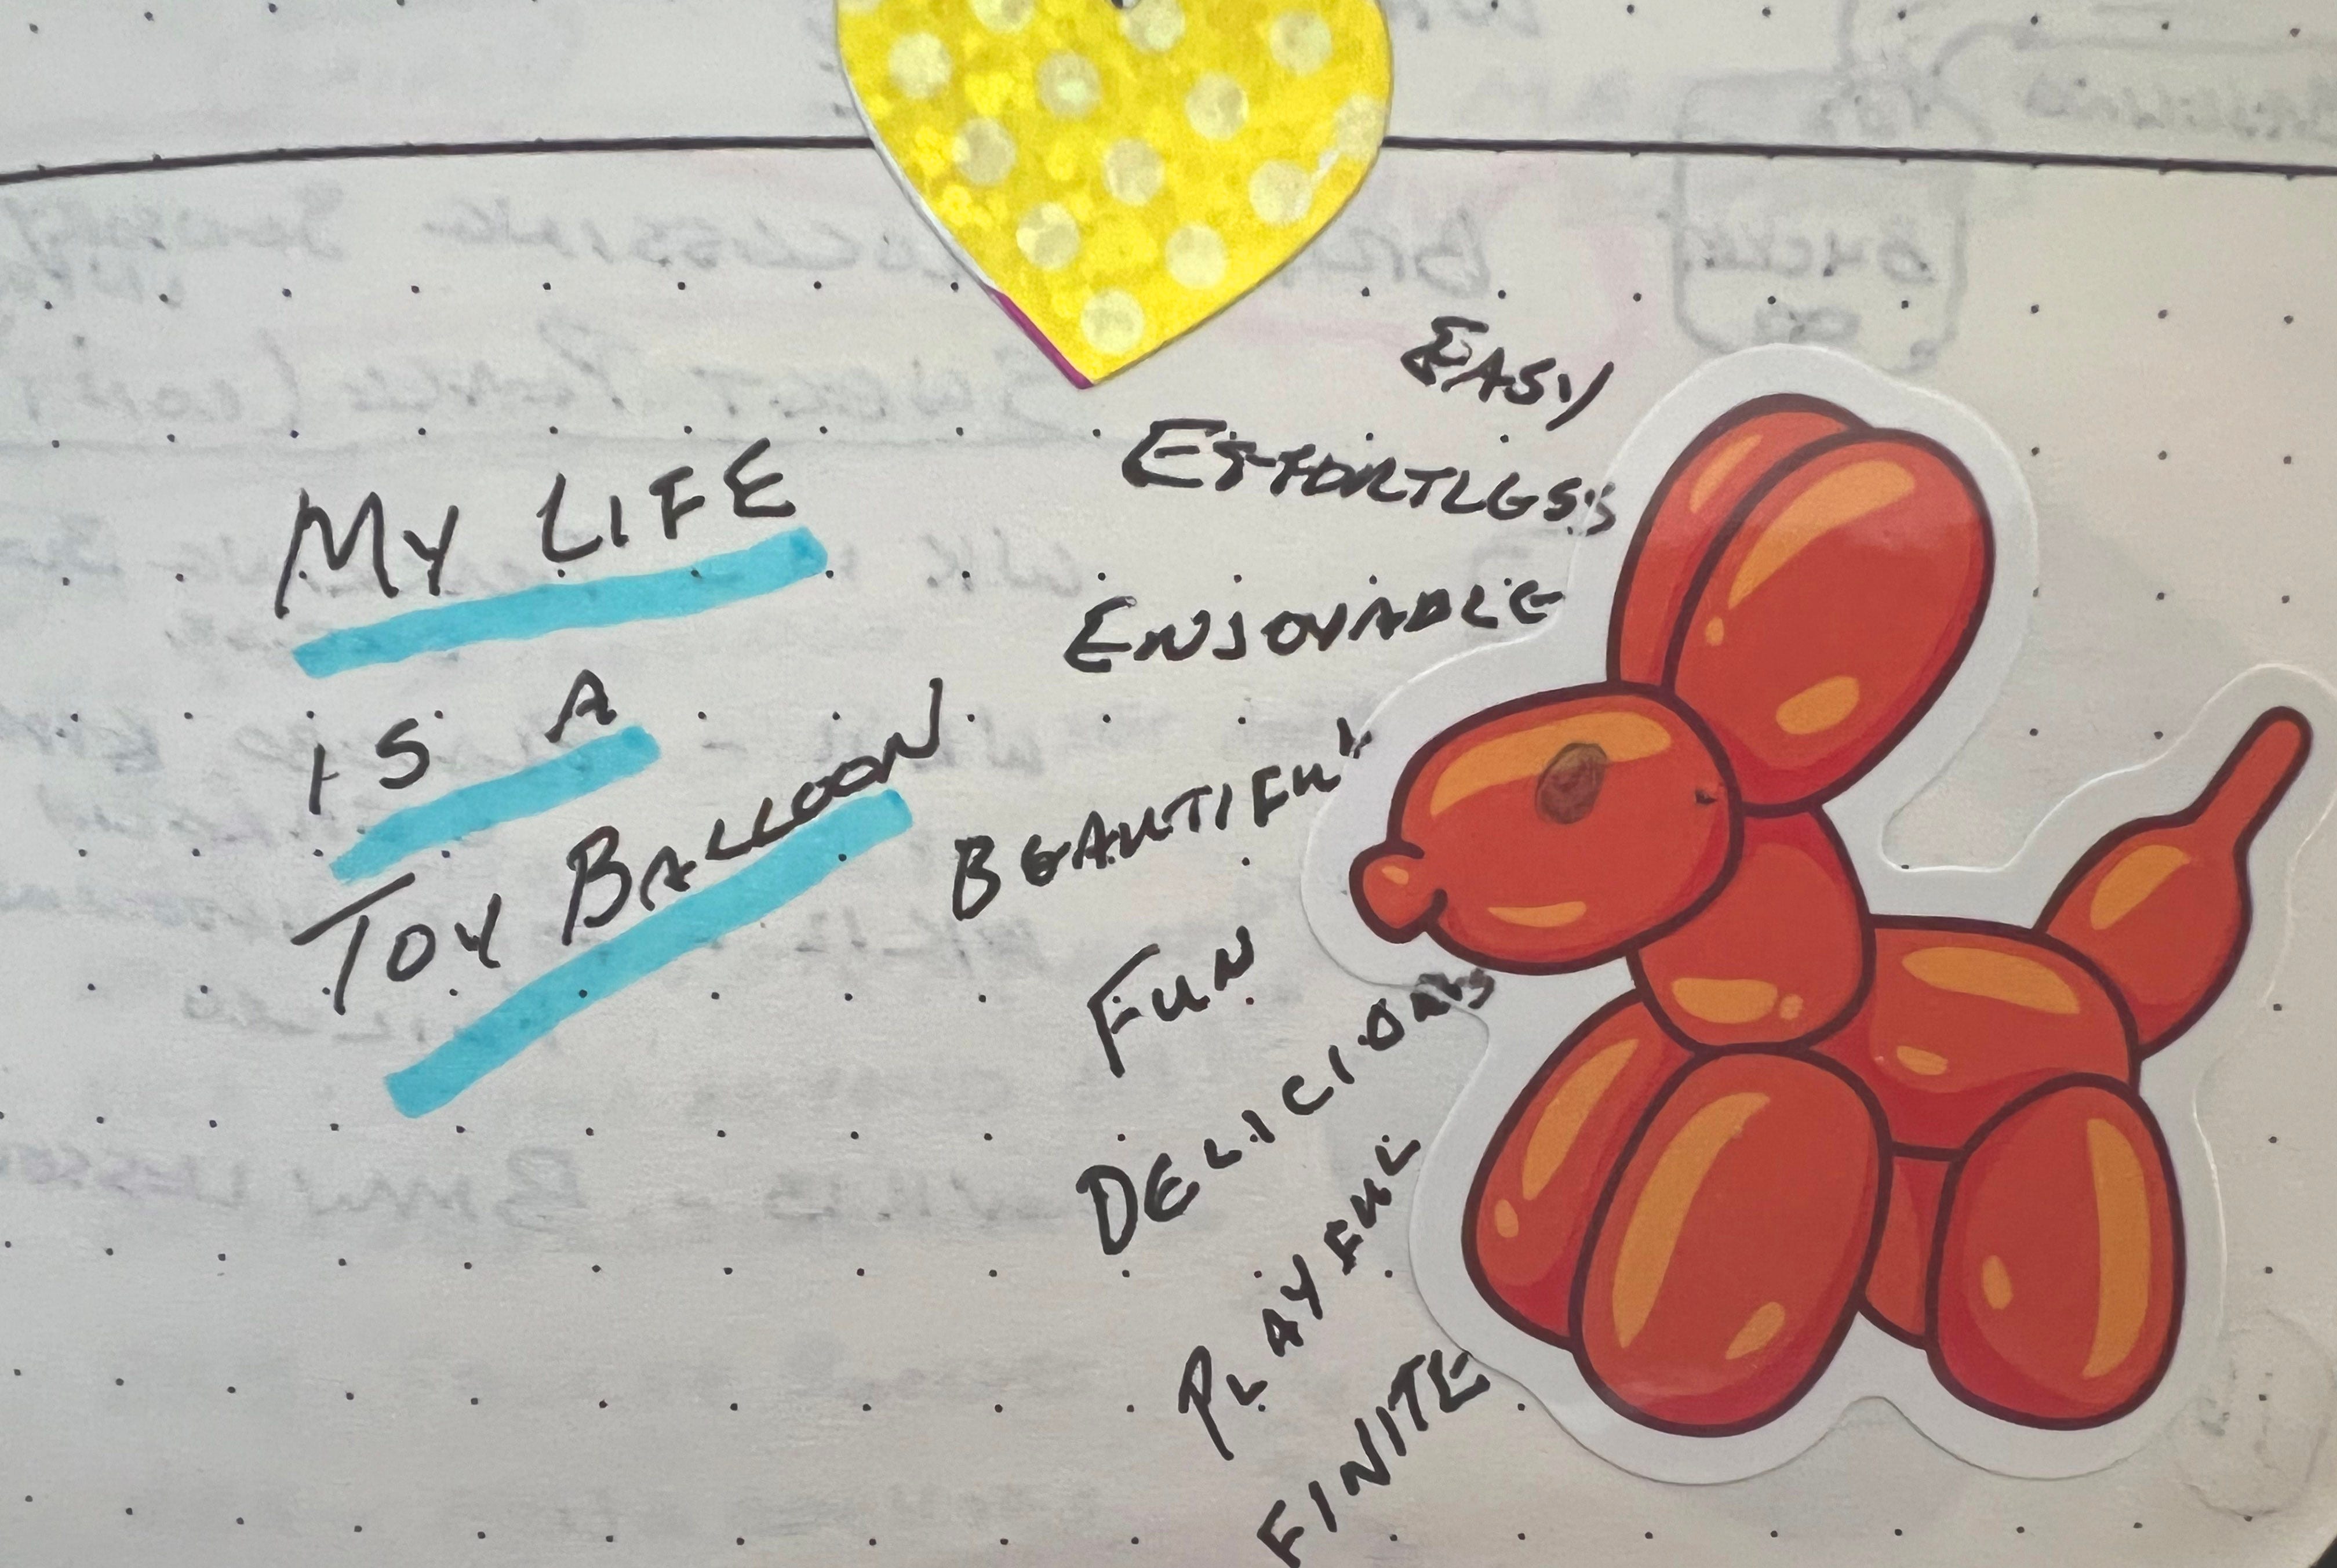 MY LIFE
IS A
TOY BALLOON
EASY
EFFORTLESS
ENJOYABLE
BEAUTIFUL
FUN
DELICIOUS
PLAYFUL
FINITE